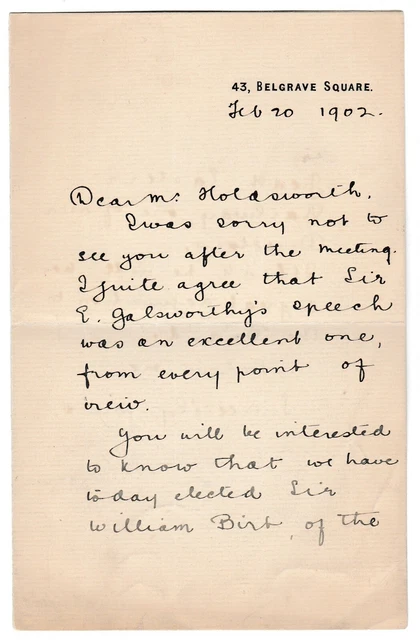 43, BELGRAVE SQUARE.
Feb 20 1902.
Dear Mr. Holdsworth,
I was sorry not to
see you after the meeting.
I quite agree that Sir
E. Galsworthy's speech
was an excellent one,
from every point of
view.
You will be interested
to know that we have
today elected Sir
William Birt, of the